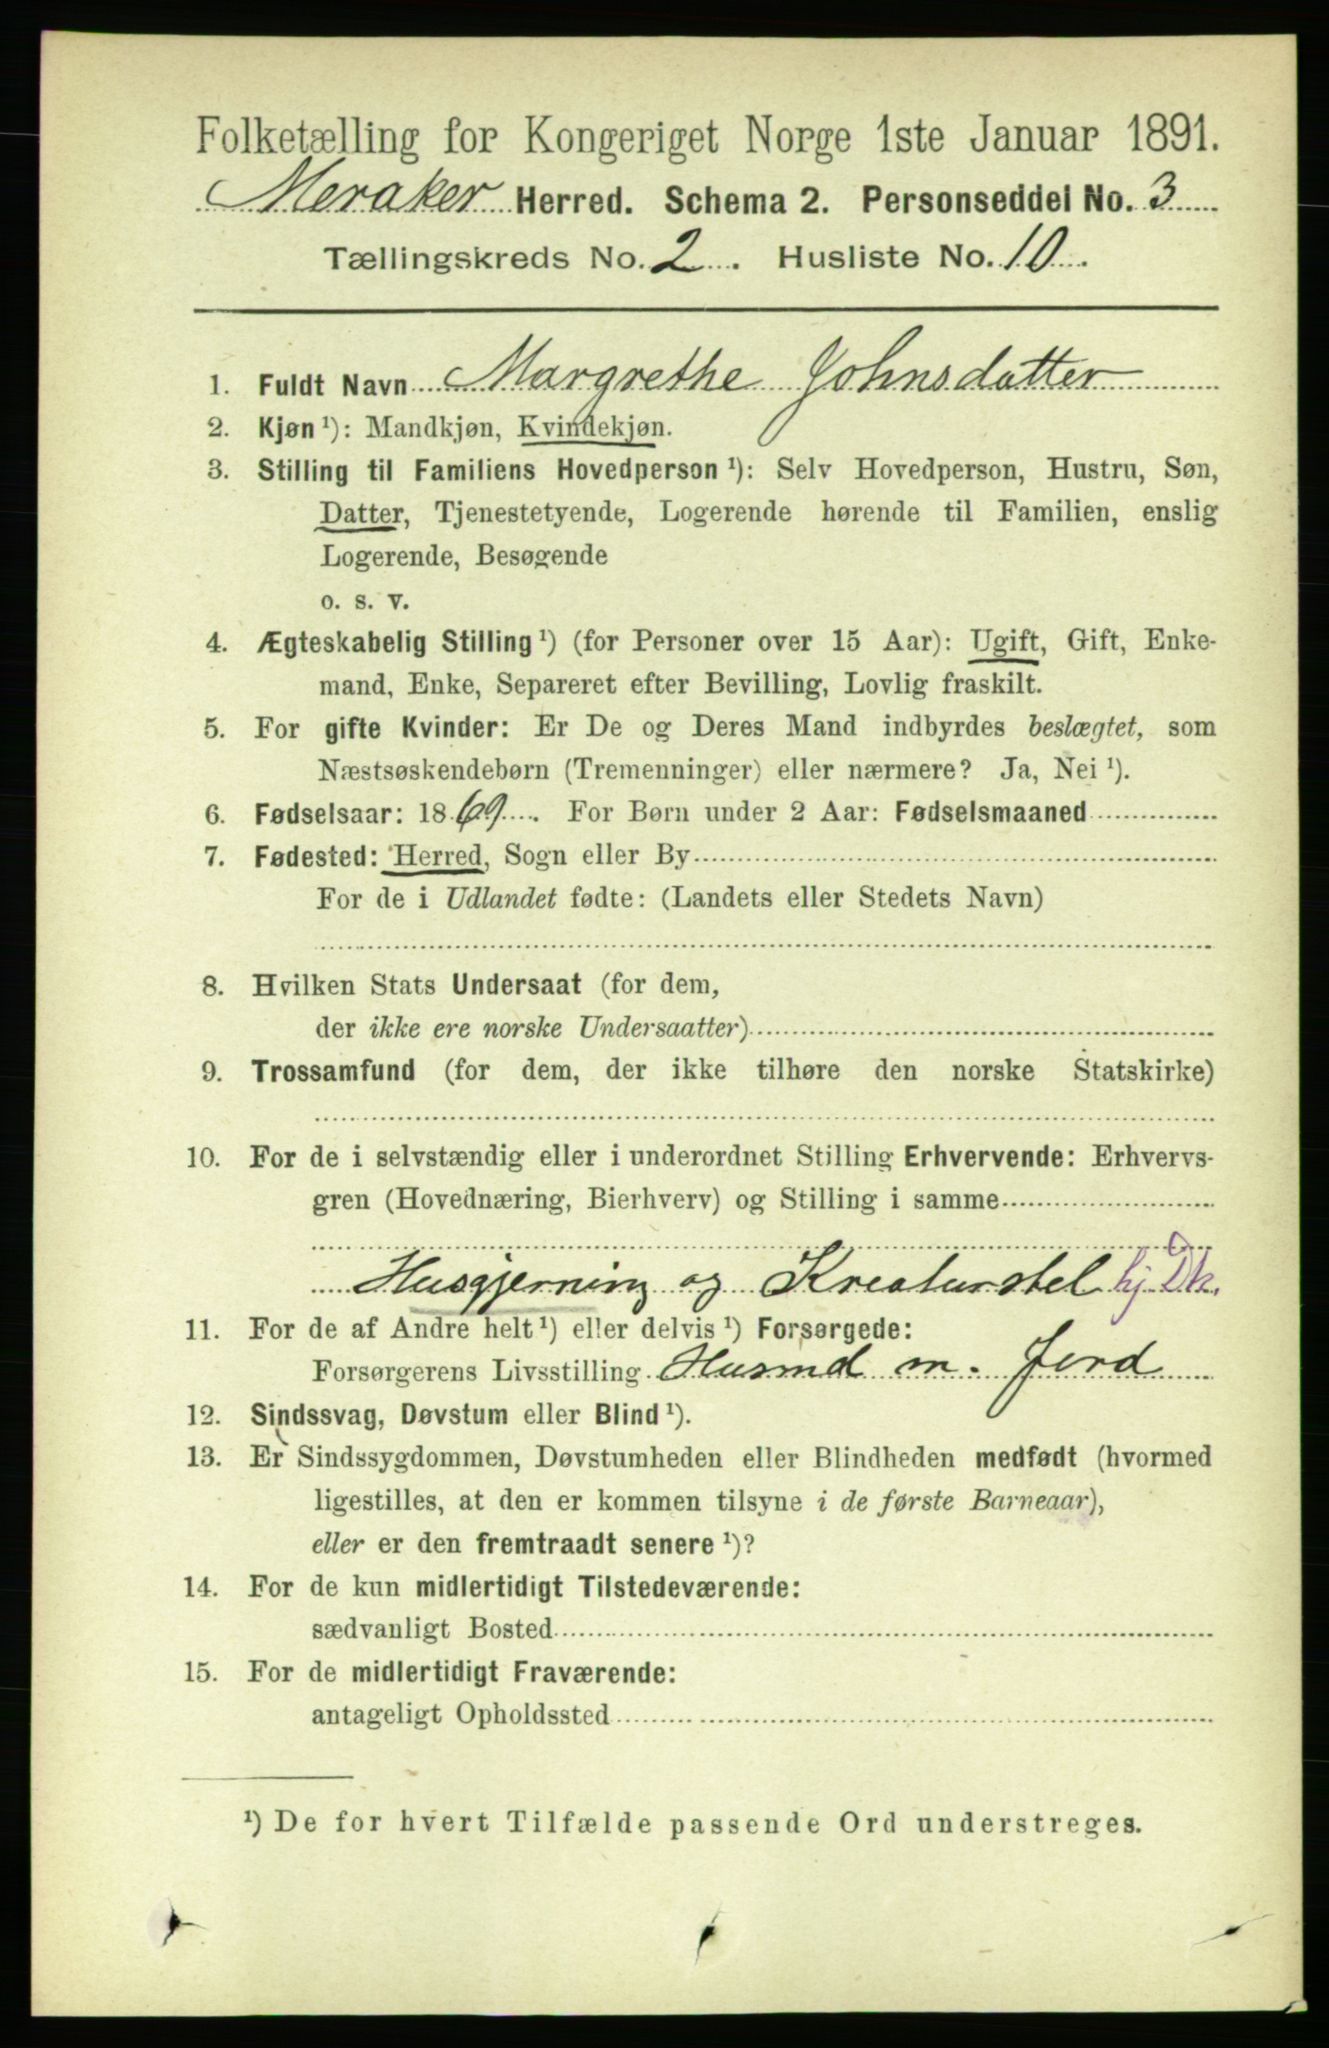 Folketælling for Kongeriget Norge 1ste Januar 1891.
Meraker Herred. Schema 2. Personseddel No. 3
Tællingskreds No. 2. Husliste No. 10.
1. Fuldt Navn Margrethe Johnsdatter
2. Kjøn ¹): Mandkjøn, Kvindekjøn.
3. Stilling til Familiens Hovedperson ¹): Selv Hovedperson, Hustru, Søn,
Datter, Tjenestetyende, Logerende hørende til Familien, enslig
Logerende, Besøgende
o. s. v.
4. Ægteskabelig Stilling ¹) (for Personer over 15 Aar): Ugift, Gift, Enke-
mand, Enke, Separeret efter Bevilling, Lovlig fraskilt.
5. For gifte Kvinder: Er De og Deres Mand indbyrdes beslægtet, som
Næstsøskendebørn (Tremenninger) eller nærmere? Ja, Nei ¹).
6. Fødselsaar: 1869. For Børn under 2 Aar: Fødselsmaaned
7. Fødested: Herred, Sogn eller By
For de i Udlandet fødte: (Landets eller Stedets Navn)
8. Hvilken Stats Undersaat (for dem,
der ikke ere norske Undersaatter)
9. Trossamfund (for dem, der ikke tilhøre den norske Statskirke)
10. For de i selvstændig eller i underordnet Stilling Erhvervende: Erhvervs-
gren (Hovednæring, Bierhverv) og Stilling i samme
Husgjerning og Kreaturstel hj. Dk.
11. For de af Andre helt ¹) eller delvis ¹) Forsørgede:
Forsørgerens Livsstilling Husmd m. Jord
12. Sindssvag, Døvstum eller Blind ¹).
13. Er Sindssygdommen, Døvstumheden eller Blindheden medfødt (hvormed
ligestilles, at den er kommen tilsyne i de første Barneaar),
eller er den fremtraadt senere ¹)?
14. For de kun midlertidigt Tilstedeværende:
sædvanligt Bosted
15. For de midlertidigt Fraværende:
antageligt Opholdssted
¹) De for hvert Tilfælde passende Ord understreges.